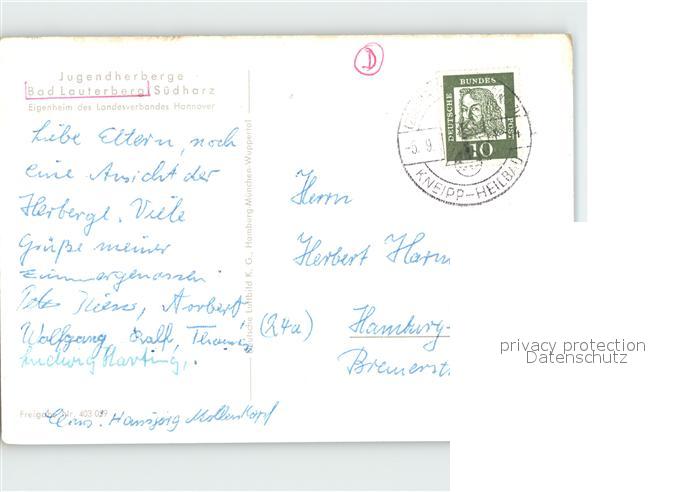 Jugendherberge
Bad Lauterberg Südharz
Eigenheim des Landesverbandes Hannover
Liebe Eltern, noch
eine Ansicht der
Herberge. Viele
Grüße meiner
Zimmergenossen
Norbert,
Wolfgang Ralf, Thomas,
Ludwig Harting,
Hansjörg
Freigabe Nr. 403 059
Deutsche Luftbild K. G., Hamburg München-Wuppertal
D
DEUTSCHE BUNDES POST
10
-5. 9.
KNEIPP-HEILBAD
Herrn
Herbert
(24a) Hamburg-
Bremerst
privacy protection
Datenschutz